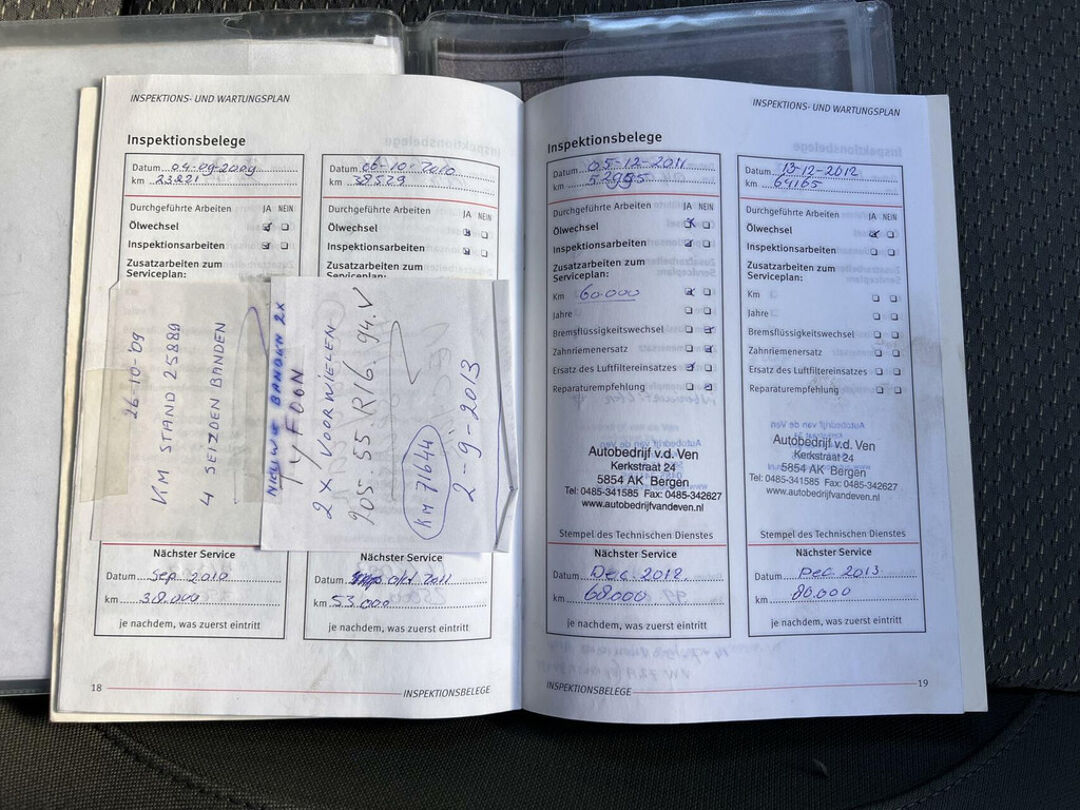 INSPEKTIONS- UND WARTUNGSPLAN
Inspektionsbelege
Datum 04-09-2009
km 23221
Durchgeführte Arbeiten JA NEIN
Ölwechsel
Inspektionsarbeiten
Zusatzarbeiten zum
Serviceplan:
Datum 06-10-2010
km 38529
Durchgeführte Arbeiten JA NEIN
Ölwechsel
Inspektionsarbeiten
Zusatzarbeiten zum
Serviceplan:
26-10-'09
KM STAND 25889
4 SEIZDEN BANDEN
NIEUWE BANDEN 2X
TYFOON
2 X VOORWIELEN
205.55.R16.94.V
KM 71644
2-9-2013
Nächster Service
Datum Sep 2010
km 38.000
je nachdem, was zuerst eintritt
Nächster Service
Datum okt 2011
km 53.000
je nachdem, was zuerst eintritt
18
INSPEKTIONSBELEGE
INSPEKTIONS- UND WARTUNGSPLAN
Inspektionsbelege
Datum 05-12-2011
km 52995
Durchgeführte Arbeiten JA NEIN
Ölwechsel
Inspektionsarbeiten
Zusatzarbeiten zum
Serviceplan:
Km 60.000
Jahre
Bremsflüssigkeitswechsel
Zahnriemenersatz
Ersatz des Luftfiltereinsatzes
Reparaturempfehlung
Autobedrijf v.d. Ven
Kerkstraat 24
5854 AK Bergen
Tel: 0485-341585 Fax: 0485-342627
www.autobedrijfvandeven.nl
Stempel des Technischen Dienstes
Nächster Service
Datum Dec. 2012.
km 68.000
je nachdem, was zuerst eintritt
Datum 13-12-2012
km 64165
Durchgeführte Arbeiten JA NEIN
Ölwechsel
Inspektionsarbeiten
Zusatzarbeiten zum
Serviceplan:
Km
Jahre
Bremsflüssigkeitswechsel
Zahnriemenersatz
Ersatz des Luftfiltereinsatzes
Reparaturempfehlung
Autobedrijf v.d. Ven
Kerkstraat 24
5854 AK Bergen
Tel: 0485-341585 Fax: 0485-342627
www.autobedrijfvandeven.nl
Stempel des Technischen Dienstes
Nächster Service
Datum Dec. 2013
km 80.000
je nachdem, was zuerst eintritt
INSPEKTIONSBELEGE
19